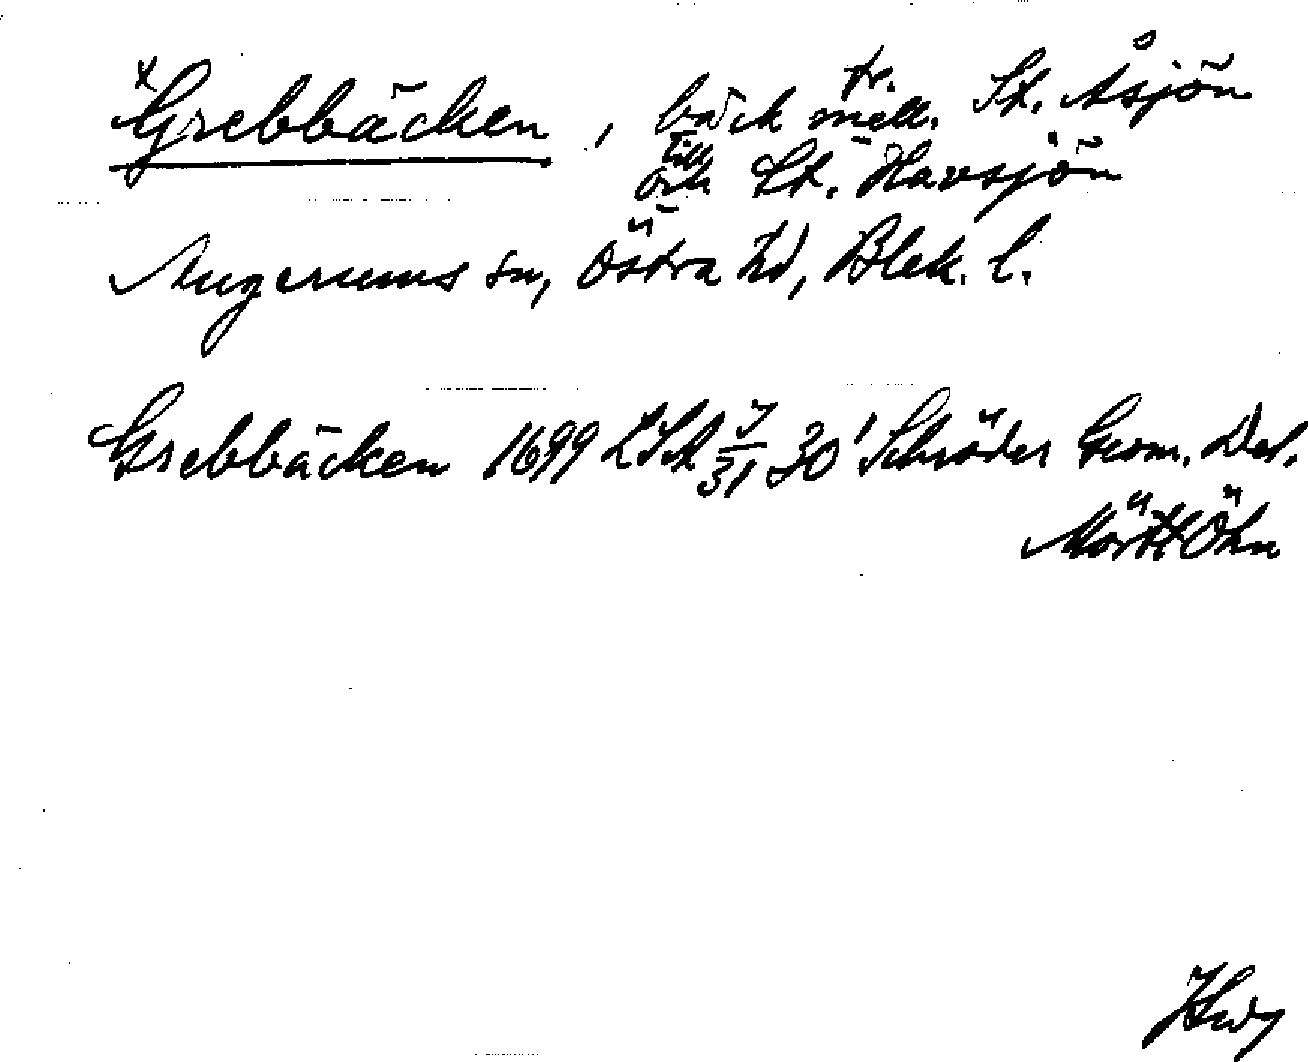 x Grebbäcken, bäck mell. fr. St. Åsjön
och till St. Havsjön
Augerums sn, Östra hd, Blek. l.
Grebbäcken 1699 LSA 30 Schröder Geom. Del.